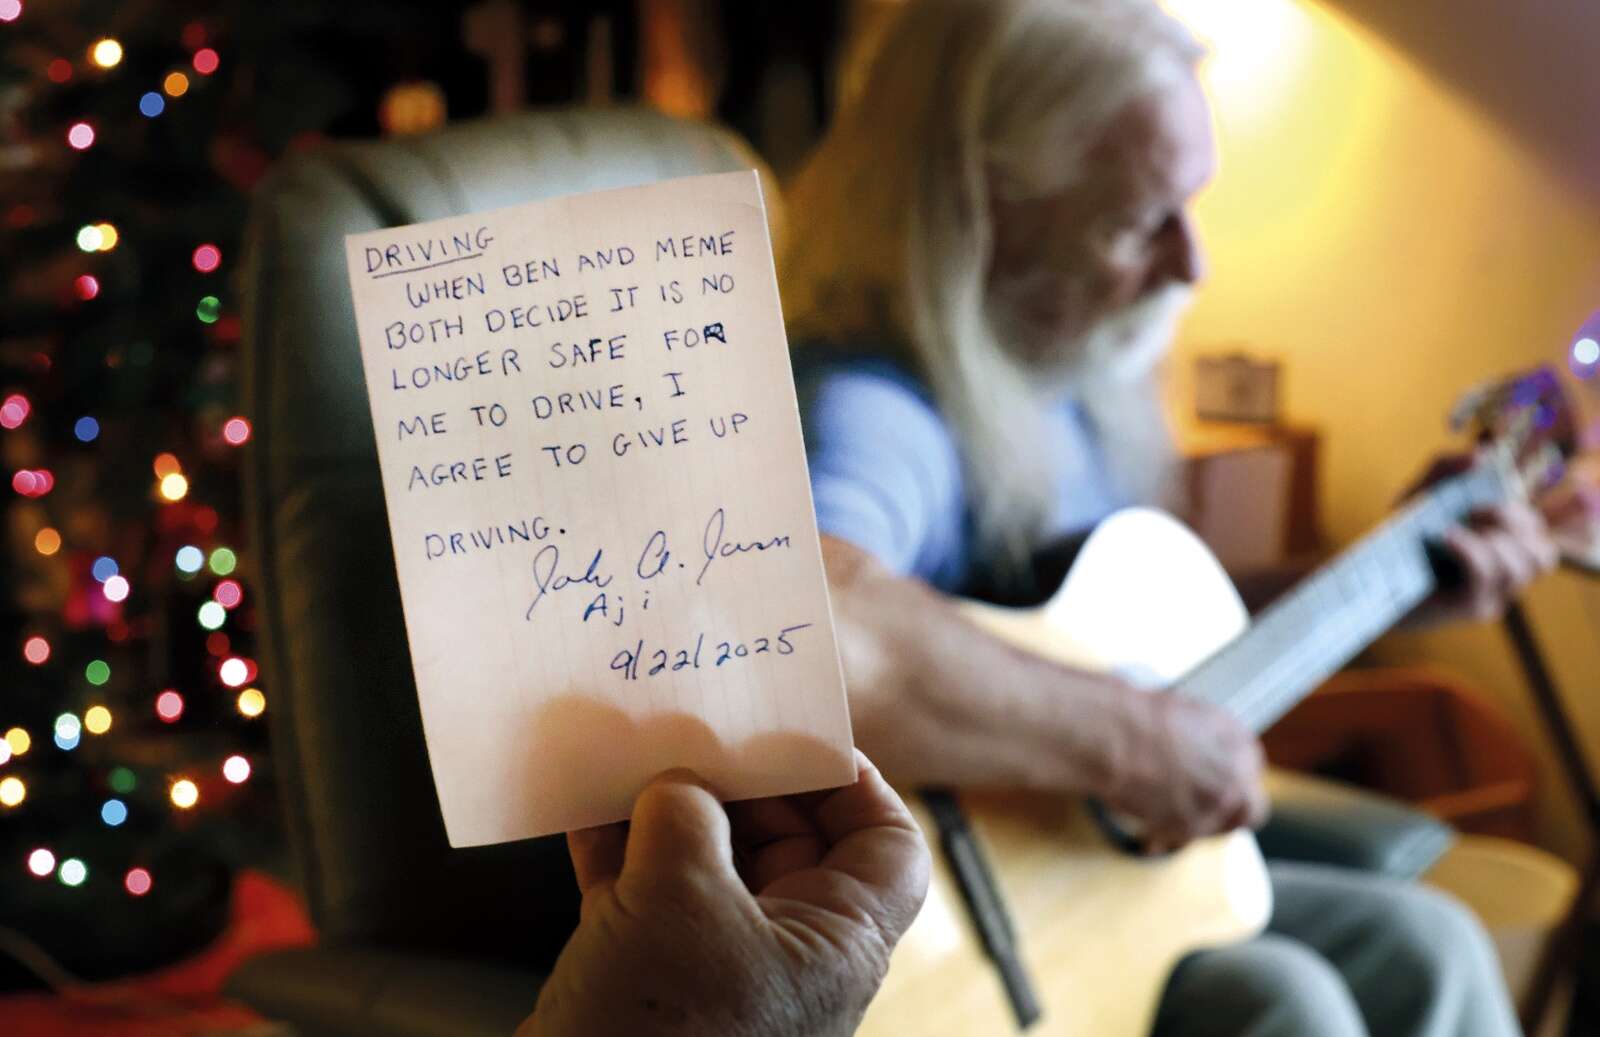 DRIVING
WHEN BEN AND MEME
BOTH DECIDE IT IS NO
LONGER SAFE FOR
ME TO DRIVE, I
AGREE TO GIVE UP
DRIVING.
A.
Aji
9/22/2025